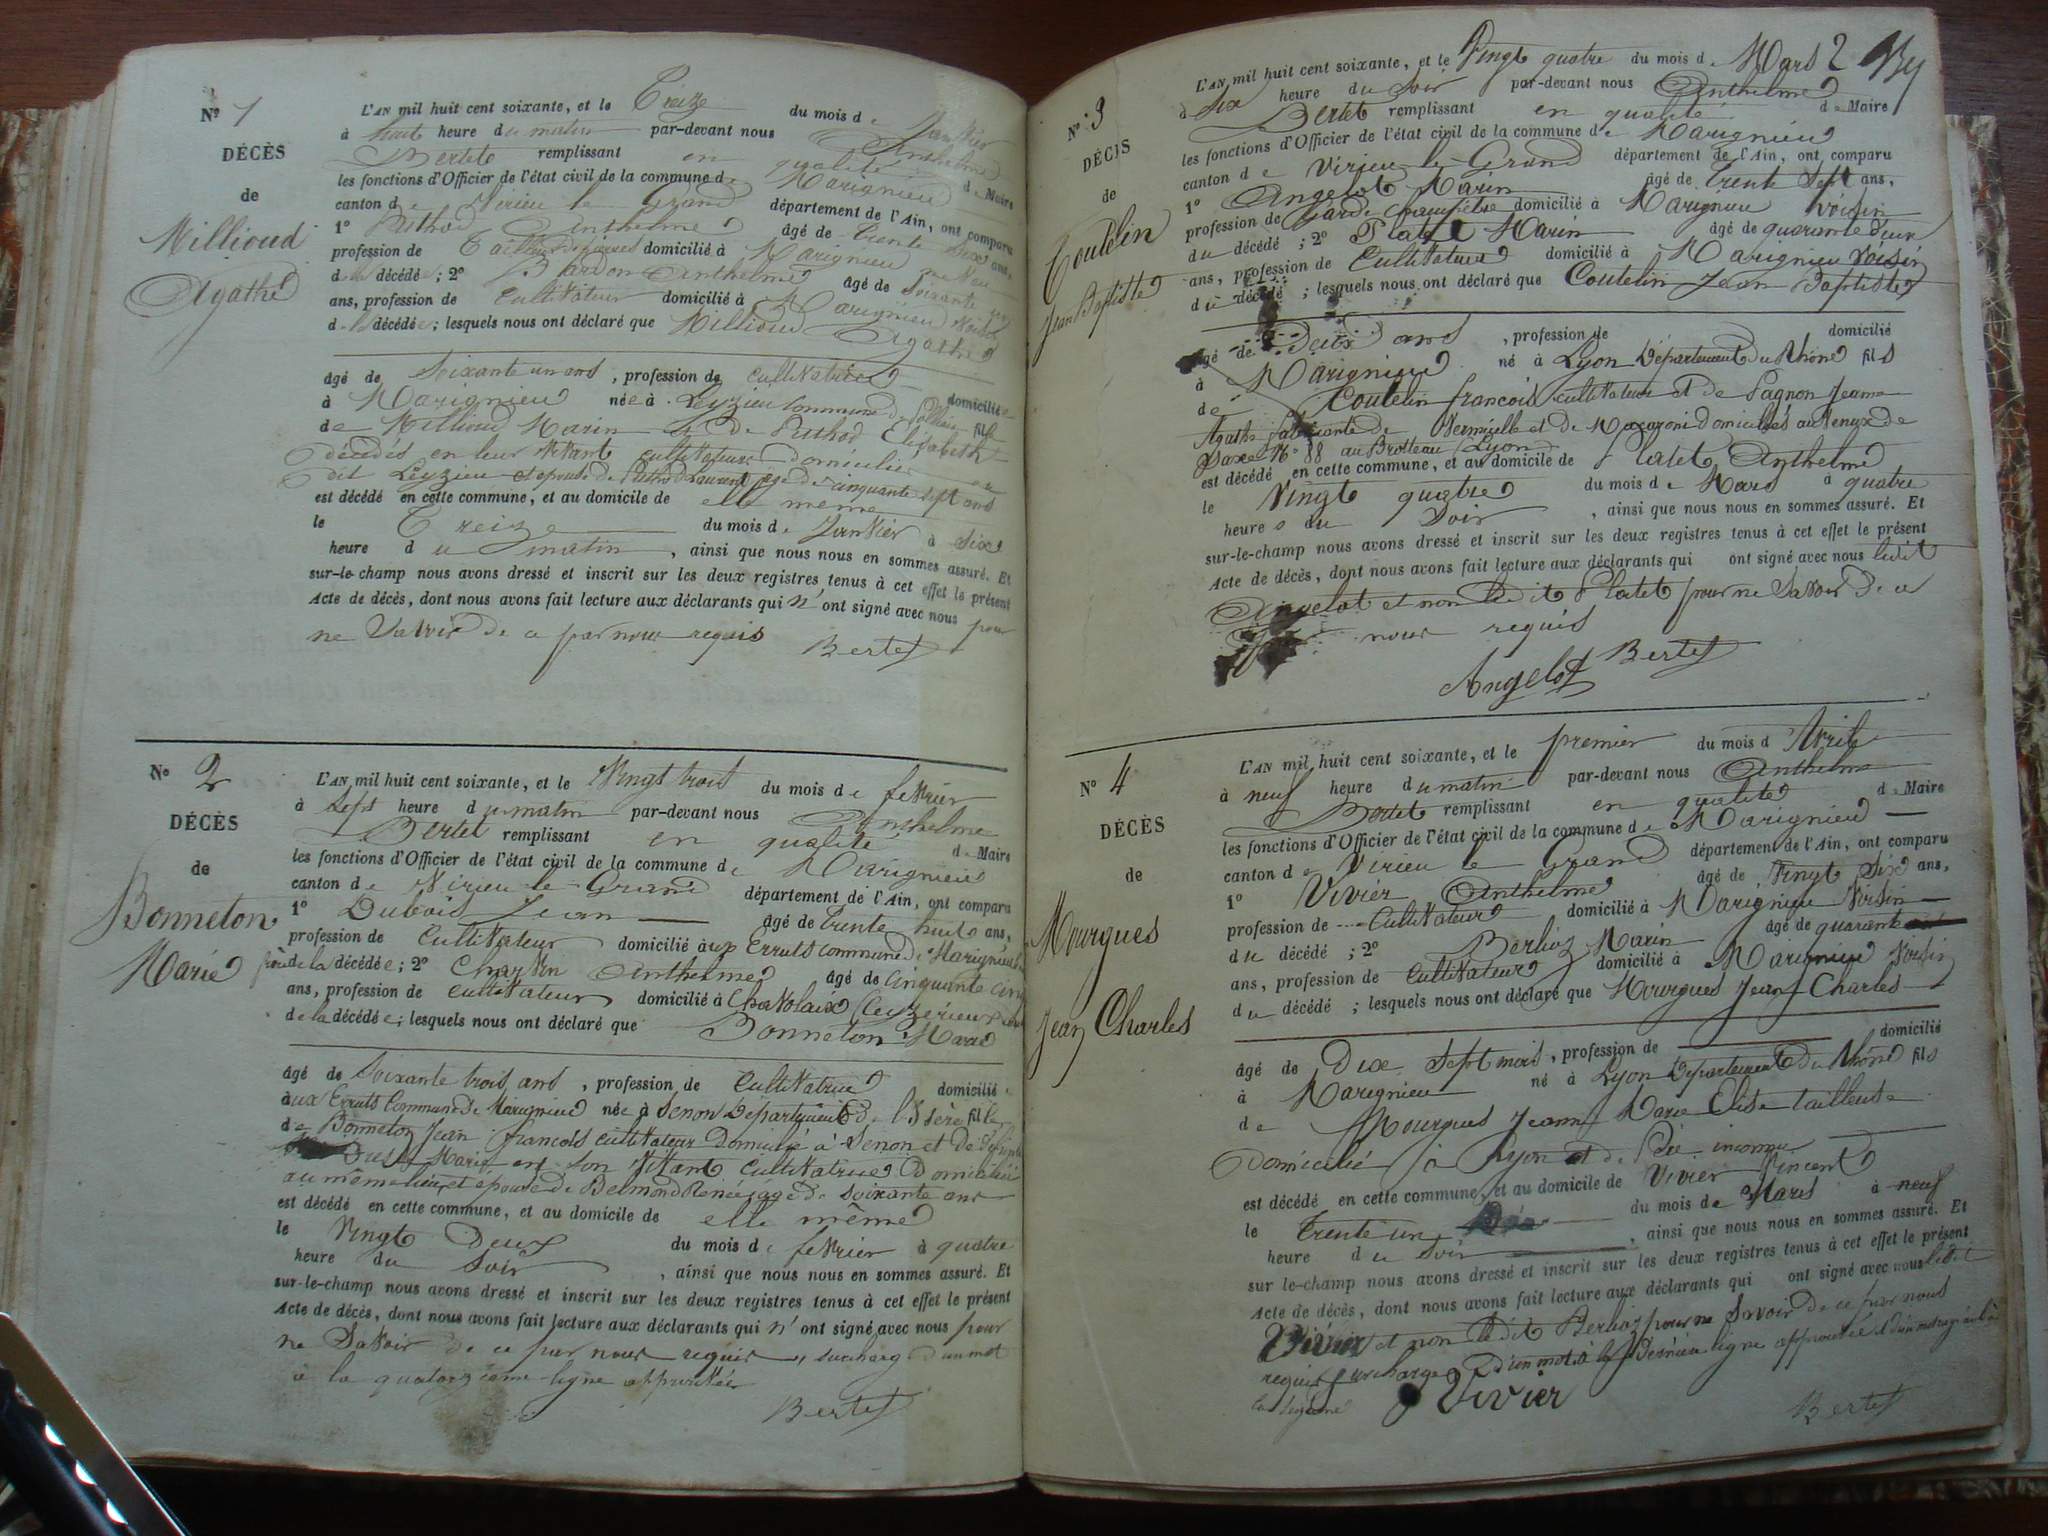 Nº 1
DÉCÈS
de
Millioud
Agathe
L'AN mil huit cent soixante, et le Treize du mois de Janvier
à huit heure du matin par-devant nous Anthelme
Bertet remplissant en qualité de Maire
les fonctions d'Officier de l'état civil de la commune de Marignieu
canton de Virieu le Grand département de l'Ain, ont comparu
1º Puthod Anthelme âgé de trente six ans,
profession de Tailleur de pierres domicilié à Marignieu neveu
de la décédée ; 2º Bardon Anthelme âgé de soixante
ans, profession de Cultivateur domicilié à Marignieu voisin
de la décédée ; lesquels nous ont déclaré que Millioud
Agathe
âgé de Soixante un ans, profession de Cultivatrice domiciliée
à Marignieu née à Leyzieu Commune de fille
de Millioud Marin et de Puthod Elisabeth
décédés en leur vivant cultivateurs domiciliés au
dit Leyzieu et épouse de Puthod Laurent âgé de cinquante sept ans
est décédé en cette commune, et au domicile de elle même
le Treize du mois de Janvier à six
heure du matin, ainsi que nous nous en sommes assuré. Et
sur-le-champ nous avons dressé et inscrit sur les deux registres tenus à cet effet le présent
Acte de décès, dont nous avons fait lecture aux déclarants qui n'ont signé avec nous pour
ne Savoir de ce par nous requis Bertet
Nº 2
DÉCÈS
de
Bonneton
Marie
L'AN mil huit cent soixante, et le Vingt trois du mois de fevrier
à Sept heure du matin par-devant nous Anthelme
Bertet remplissant en qualité de Maire
les fonctions d'Officier de l'état civil de la commune de Marignieu
canton de Virieu-le-Grand département de l'Ain, ont comparu
1º Dubois Jean âgé de trente huit ans,
profession de Cultivateur domicilié aux Erruts commune de Marignieu
de la décédée ; 2º Charvin Anthelme âgé de Cinquante cinq
ans, profession de Cultivateur domicilié à Chavolaix Ceyzérieux
de la décédée ; lesquels nous ont déclaré que Bonneton Marie
âgé de Soixante trois ans, profession de Cultivatrice domiciliée
aux Erruts Commune de Marignieu née à Senon Département de l'Isère fille
de Bonneton Jean françois cultivateur Domicilié à Senon et de
Marie en son vivant Cultivatrice Domiciliée
au même lieu, et épouse de Belmond Renée âgé de soixante ans
est décédé en cette commune, et au domicile de elle même
le Vingt Deux du mois de fevrier à quatre
heure du Soir, ainsi que nous nous en sommes assuré. Et
sur-le-champ nous avons dressé et inscrit sur les deux registres tenus à cet effet le présent
Acte de décès, dont nous avons fait lecture aux déclarants qui n'ont signé avec nous pour
ne Savoir de ce par nous requis, surcharge d'un mot
à la quatorzième ligne approuvée
Bertet
2
Nº 3
DÉCÈS
de
Coutelin
Jean Baptiste
L'AN mil huit cent soixante, et le Vingt quatre du mois de Mars
à Six heure du Soir par-devant nous Anthelme
Bertet remplissant en qualité de Maire
les fonctions d'Officier de l'état civil de la commune de Marignieu
canton de Virieu-le-Grand département de l'Ain, ont comparu
1º Angelot Marin âgé de trente Sept ans,
profession de garde champêtre domicilié à Marignieu voisin
du décédé ; 2º Platet Marin âgé de quarante deux
ans, profession de Cultivateur domicilié à Marignieu voisin
du décédé ; lesquels nous ont déclaré que Coutelin Jean Baptiste
âgé de Deux ans, profession de domicilié
à Marignieu né à Lyon Département du Rhône fils
de Coutelin francois Cultivateur et de Pagnon Jeanne
Agathe fabricante de Vermicelle et de Macaroni domiciliés avenue de
Saxe Nº 88 au Brotteau Lyon
est décédé en cette commune, et au domicile de Platet Anthelme
le Vingt quatre du mois de Mars à quatre
heures du Soir, ainsi que nous nous en sommes assuré. Et
sur-le-champ nous avons dressé et inscrit sur les deux registres tenus à cet effet le présent
Acte de décès, dont nous avons fait lecture aux déclarants qui ont signé avec nous ledit
Angelot et non ledit Platet pour ne Savoir de ce
nous requis
Angelot Bertet
Nº 4
DÉCÈS
de
Mourgues
Jean Charles
L'AN mil huit cent soixante, et le premier du mois d Avril
à neuf heure du matin par-devant nous Anthelme
Bertet remplissant en qualité de Maire
les fonctions d'Officier de l'état civil de la commune de Marignieu
canton de Virieu le Grand département de l'Ain, ont comparu
1º Vivier Anthelme âgé de Vingt Six ans,
profession de Cultivateur domicilié à Marignieu Voisin
du décédé ; 2º Berlioz Marin âgé de quarante
ans, profession de Cultivateur domicilié à Marignieu Voisin
du décédé ; lesquels nous ont déclaré que Mourgues Jean Charles
âgé de Dix Sept mois, profession de domicilié
à Marignieu né à Lyon Département du Rhône fils
de Mourgues Jeanne Marie Elise tailleuse
Domiciliée à Lyon et de Père inconnu
est décédé en cette commune, et au domicile de Vivier Vincent
le Trente un du mois de Mars à neuf
heure du Soir, ainsi que nous nous en sommes assuré. Et
sur-le-champ nous avons dressé et inscrit sur les deux registres tenus à cet effet le présent
Acte de décès, dont nous avons fait lecture aux déclarants qui ont signé avec nous ledit
Vivier et non ledit Berlioz pour ne Savoir de ce par nous
requis surcharge d'un mot à la Dernière ligne approuvée et d'un mot rayé à
la seizième Vivier
Bertet